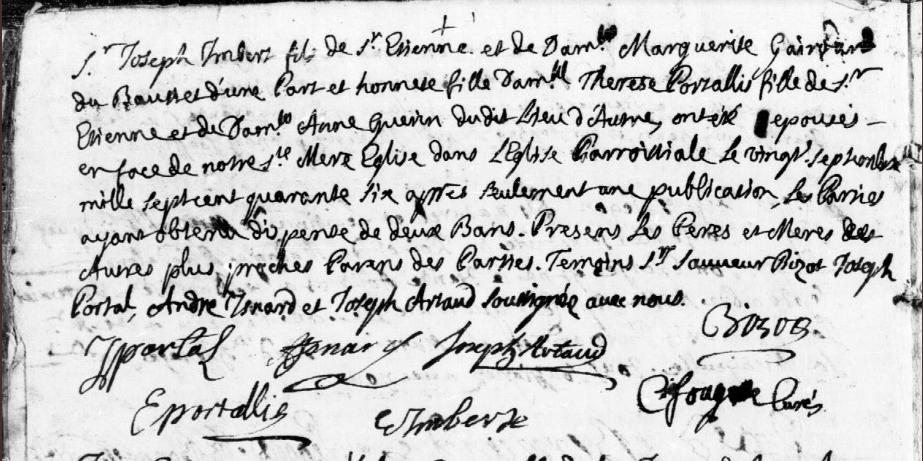 Sr Joseph Imbert fils de Sr Etienne et de Damlle Marguerite Gairoard
du Bausset d'une Part et honnete fille Damlle Therese Portallis fille de Sr
Etienne et de Damlle Anne Guerin du dit Lieu d'Autre, ont été epousés
en face de notre Ste Mere Eglise dans L'Eglise Parroissiale Le vingt Septembre
mille Sept cent quarante Six apres Seulement une publication, Les Parties
ayant obtenu dispense de deux Bans. Presens Les Peres et Meres et
Autres plus proches Parens des Parties. Temoins Sr Sauveur Bizot Joseph
Portal, André Isnard et Joseph Artaud Soussignés avec nous.
JPortal Isnard Joseph Artaud
EPortallis EImbert Curé